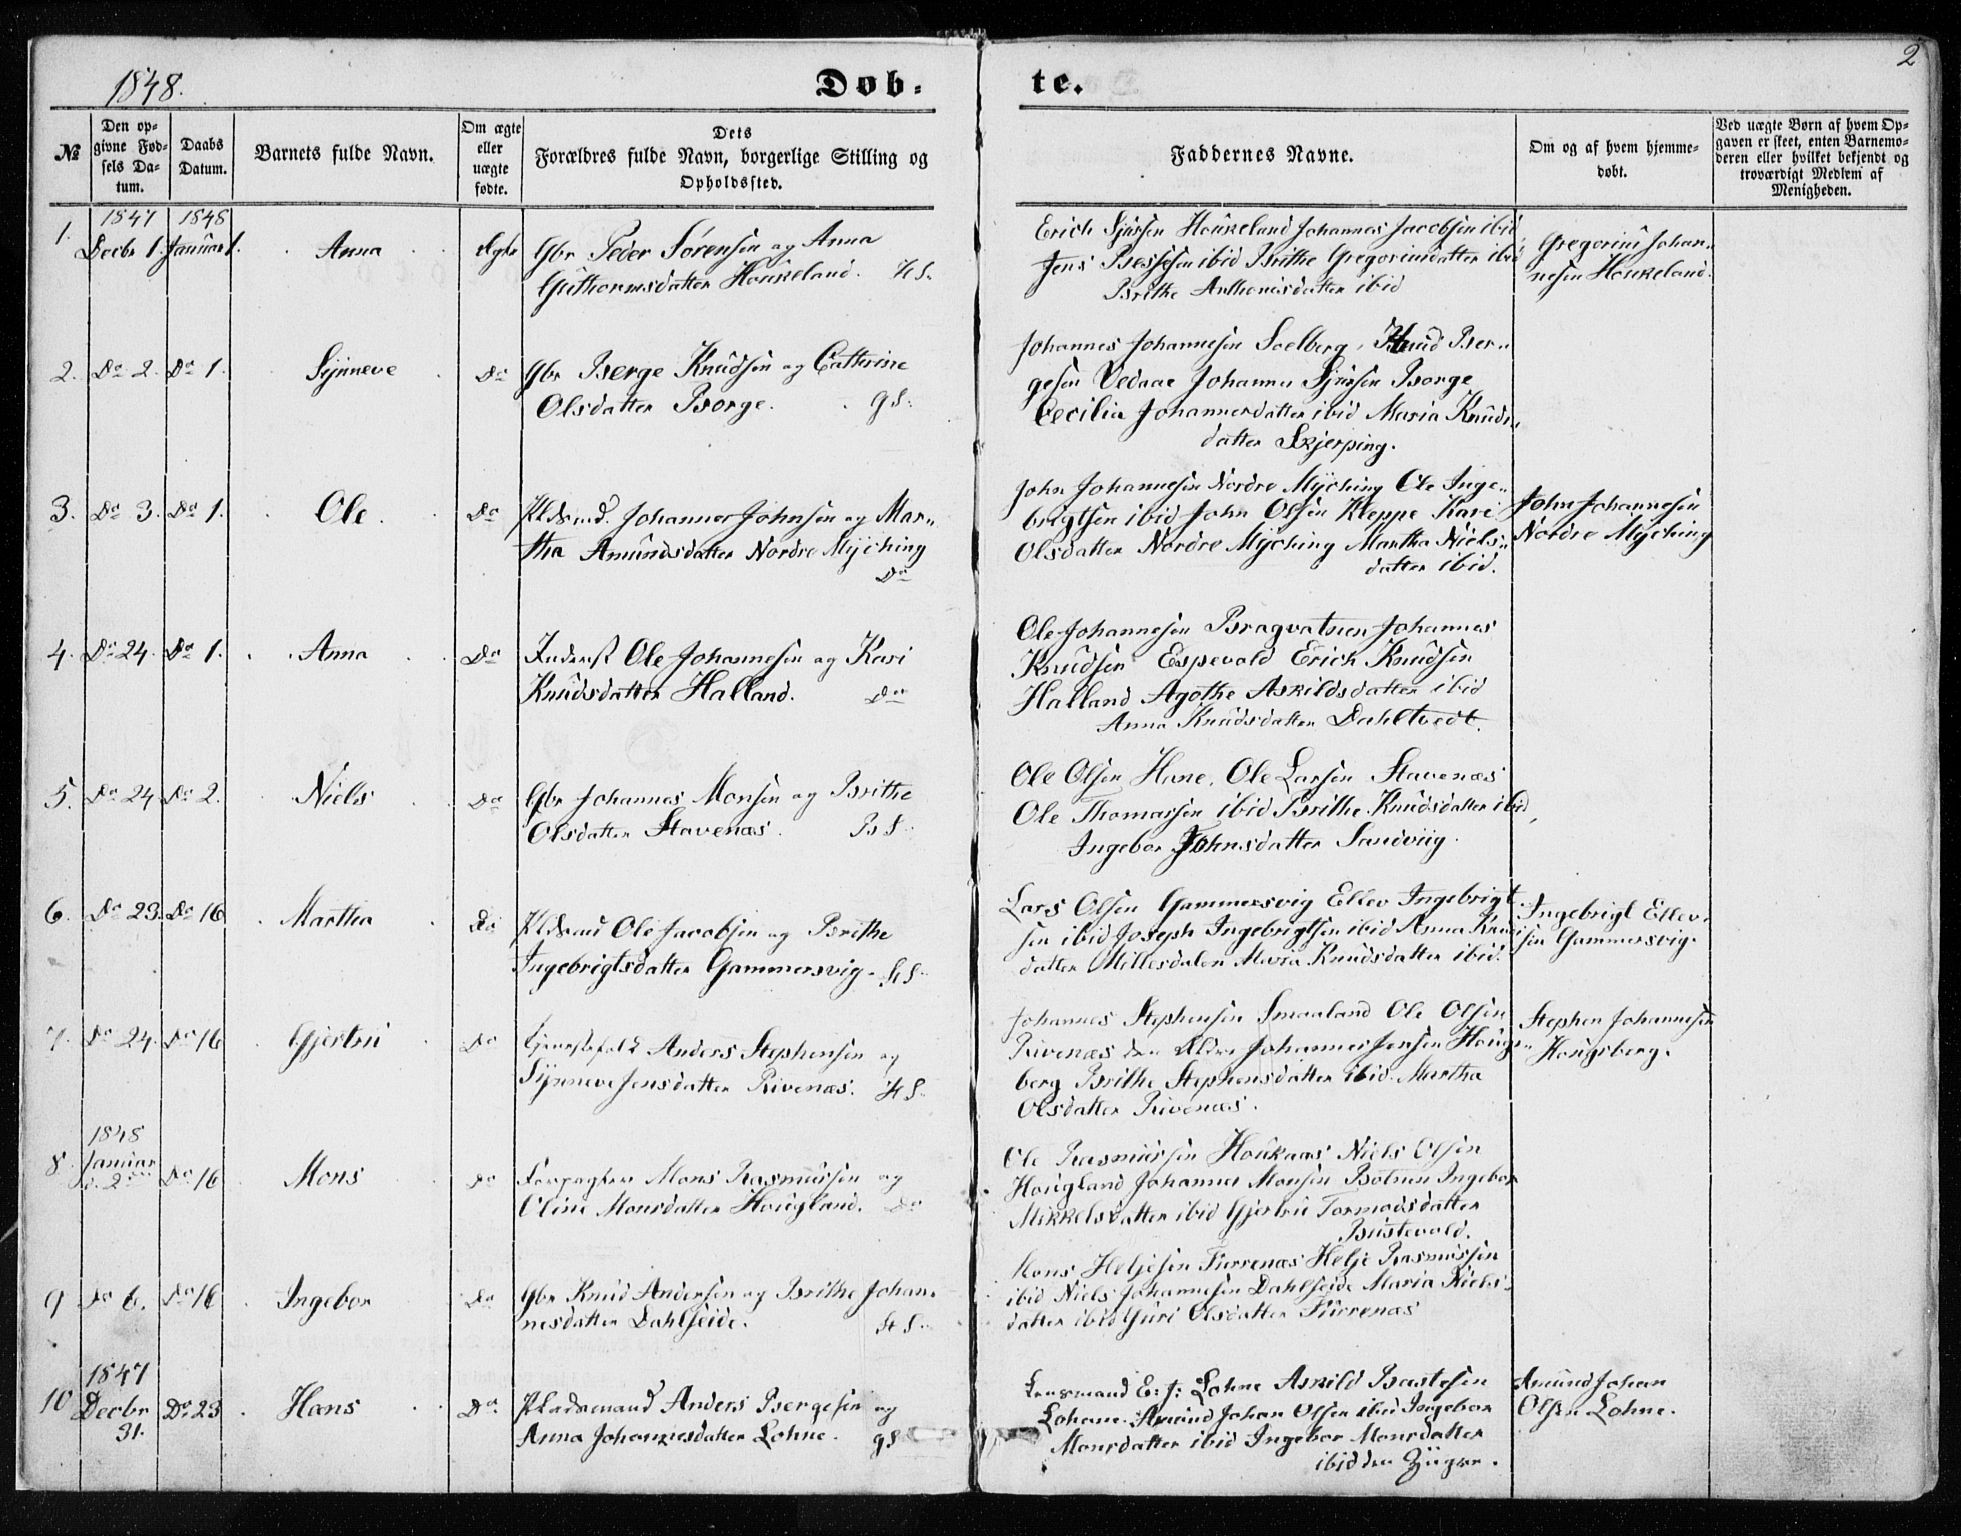 1848.
Døb-
te.
2
№
Den op-
givne Fød-
sels Da-
tum.
Daabs
Datum.
Barnets fulde Navn.
Om ægte
eller
uægte
fødte.
Dets
Forældres fulde Navn, borgerlige Stilling og
Opholdssted.
Faddernes Navne.
Om og af hvem hjemme-
døbt.
Ved uægte Børn af hvem Op-
gaven er skeet, enten Barnemo-
deren eller hvilket bekjendt og
troværdigt Medlem af
Menigheden.
1.
1847
Decbr 1.
1848
Januar 1.
Anna
Ægte
Gbr Peder Sørensen og Anna
Guthormsdatter Houkeland. HS.
Erich Sjursen Houkeland Johannes Jacobsen ibid
Jens Bessesen ibid Brithe Gregoriusdatter ibid
Brithe Anthonisdatter ibid
Gregorius Johan-
nesen Houkeland.
2.
Do 2.
Do 1.
Synneve
Do
Gbr Berge Knudsen og Cathrine
Olsdatter Borge. GS.
Johannes Johannesen Soelberg, Knud Ber-
gesen Vedaae Johannes Sjursen Borge
Cecilia Johannesdatter ibid Maria Knuds-
datter Skjerping.
3.
Do 3.
Do 1.
Ole
Do
Pldsmd. Johannes Johnsen og Mar-
tha Amundsdatter Nordre Myching
Do
John Johannesen Nordre Myching Ole Inge-
brigtsen ibid John Olsen Kleppe Kari
Olsdatter Nordre Myching Martha Niels-
datter ibid.
John Johannesen
Nordre Myching
4.
Do 24.
Do 1.
Anna
Do
Inderst Ole Johannesen og Kari
Knudsdatter Halland. Do
Ole Johannesen Bragvatnen Johannes
Knudsen Espevold Erich Knudsen
Halland Agothe Askildsdatter ibid
Anna Knudsdatter Dahltvedt.
5.
Do 24
Do 2.
Niels
Do
Gbr Johannes Monsen og Brithe
Olsdatter Stavenæs. BS.
Ole Olsen Hane. Ole Larsen Stavenæs
Ole Thomassen ibid Brithe Knudsdatter ibid,
Ingebor Johnsdatter Sandviig.
6.
Do 23.
Do 16
Martha
Do
Pldsmd Ole Jacobsen og Brithe
Ingebrigtsdatter Gammersvig. HS.
Lars Olsen Gammersvig Ellev Ingebrigt-
sen ibid Joseph Ingebrigtsen ibid Anna Knuds
datter Millesdalen Maria Knudsdatter ibid.
Ingebrigt Ellev-
sen Gammersvig.
7.
Do 24.
Do 16
Gjertru
Do
Tjenestefolk Anders Stephensen og
Synneve Jensdatter Rivenæs. HS.
Johannes Stephensen Smaaland Ole Olsen
Rivenæs den Ældre Johannes Jensen Hougs-
berg Brithe Stephensdatter ibid. Martha
Olsdatter Rivenæs.
Stephen Johannesen
Hougsberg.
8.
1848
Januar
d. 2den
Do 16
Mons
Do
Forpagter Mons Rasmussen og
Oline Monsdatter Hougland. Do
Ole Rasmussen Houkaas Niels Olsen
Hougland Johannes Monsen Botnen Ingebor
Mikkelsdatter ibid Gjertru Tormodsdatter
Bustevold.
9
Do 6.
Do 16
Ingebor
Do
Gbr Knud Andersen og Brithe Johan-
nesdatter Dahlseide. HS.
Mons Heljesen Furrenæs Helje Rasmussen
ibid Niels Johannesen Dahlseide Maria Niels-
datter ibid Guri Olsdatter Furrenæs
10
1847
Decbr
31.
Do 23
Hans
Do
Pladsmand Anders Bergesen og
Anna Johannesdatter Lohne. GS
Lensmand E: J: Lohne Askild Baatesen
Lohane. Amund Johan Olsen ibid Ingebor
Monsdatter ibid Ingebor Monsdatter
ibid den Yngre.
Amund Johan
Olsen Lohne.